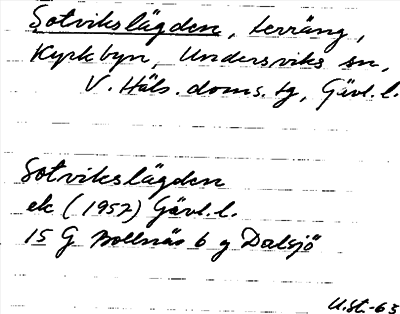 Sotvikslägden, terräng,
Kyrkbyn, Undersviks sn,
V. Häls. doms. tg, Gävl. l.
Sotvikslägden
ek (1952) Gävl. l.
15 G Bollnäs 6 g Dalsjö
U.St.-63